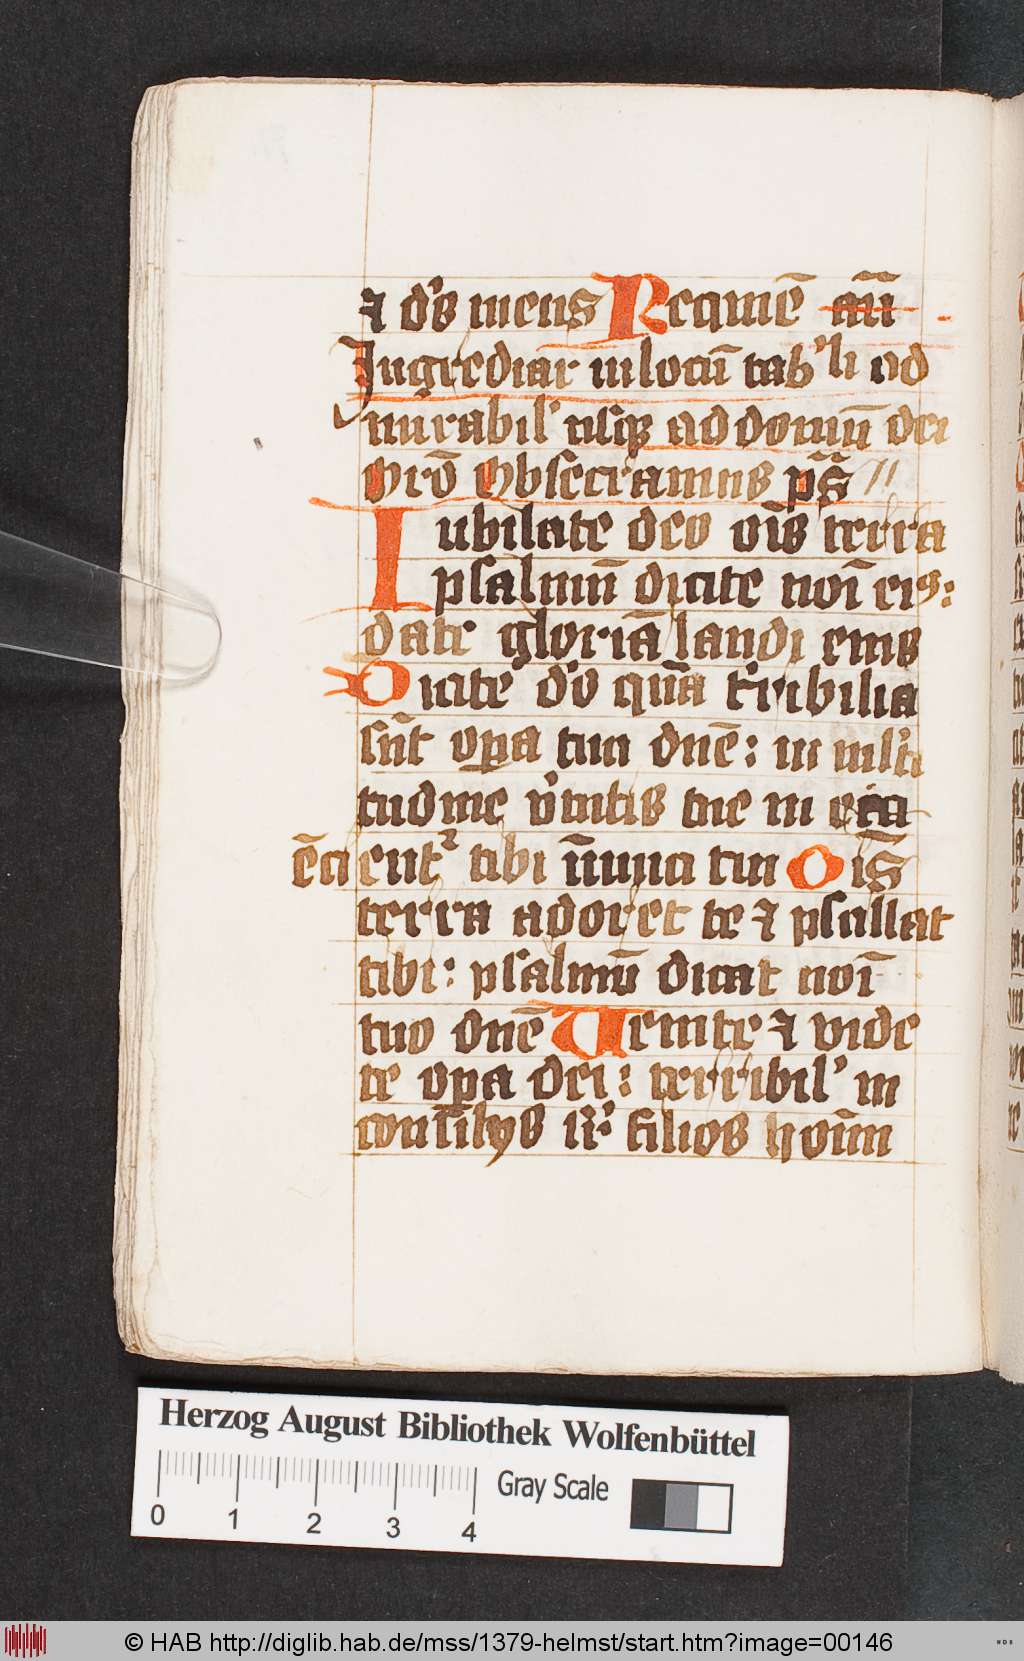 ⁊ dˢ meus Requiē aīā
Ingrediar in locū tabˀli ad
mirabilˀ usqꝫ ad domū dei
Orō Obsecramus pˢ̄ //
Iubilate deo oīs terra
psalmū dicite noī eiꝰ:
date gloriā laudi eius
Dicite dˀo quā tˀribilia
sūt opa tua dn̄e: in mlˀti
tudine vˀtutis tue m̄ e
ēci entˀ tibi īimici tui Oīs
terra adoret te ⁊ psallat
tibi: psalmū dicat noī
tuo dn̄e Uenite ⁊ vide
te opa dei: terribilˀ in
consiliis sˀ filios hoīm
Herzog August Bibliothek Wolfenbüttel
Gray Scale
0 1 2 3 4
© HAB http://diglib.hab.de/mss/1379-helmst/start.htm?image=00146